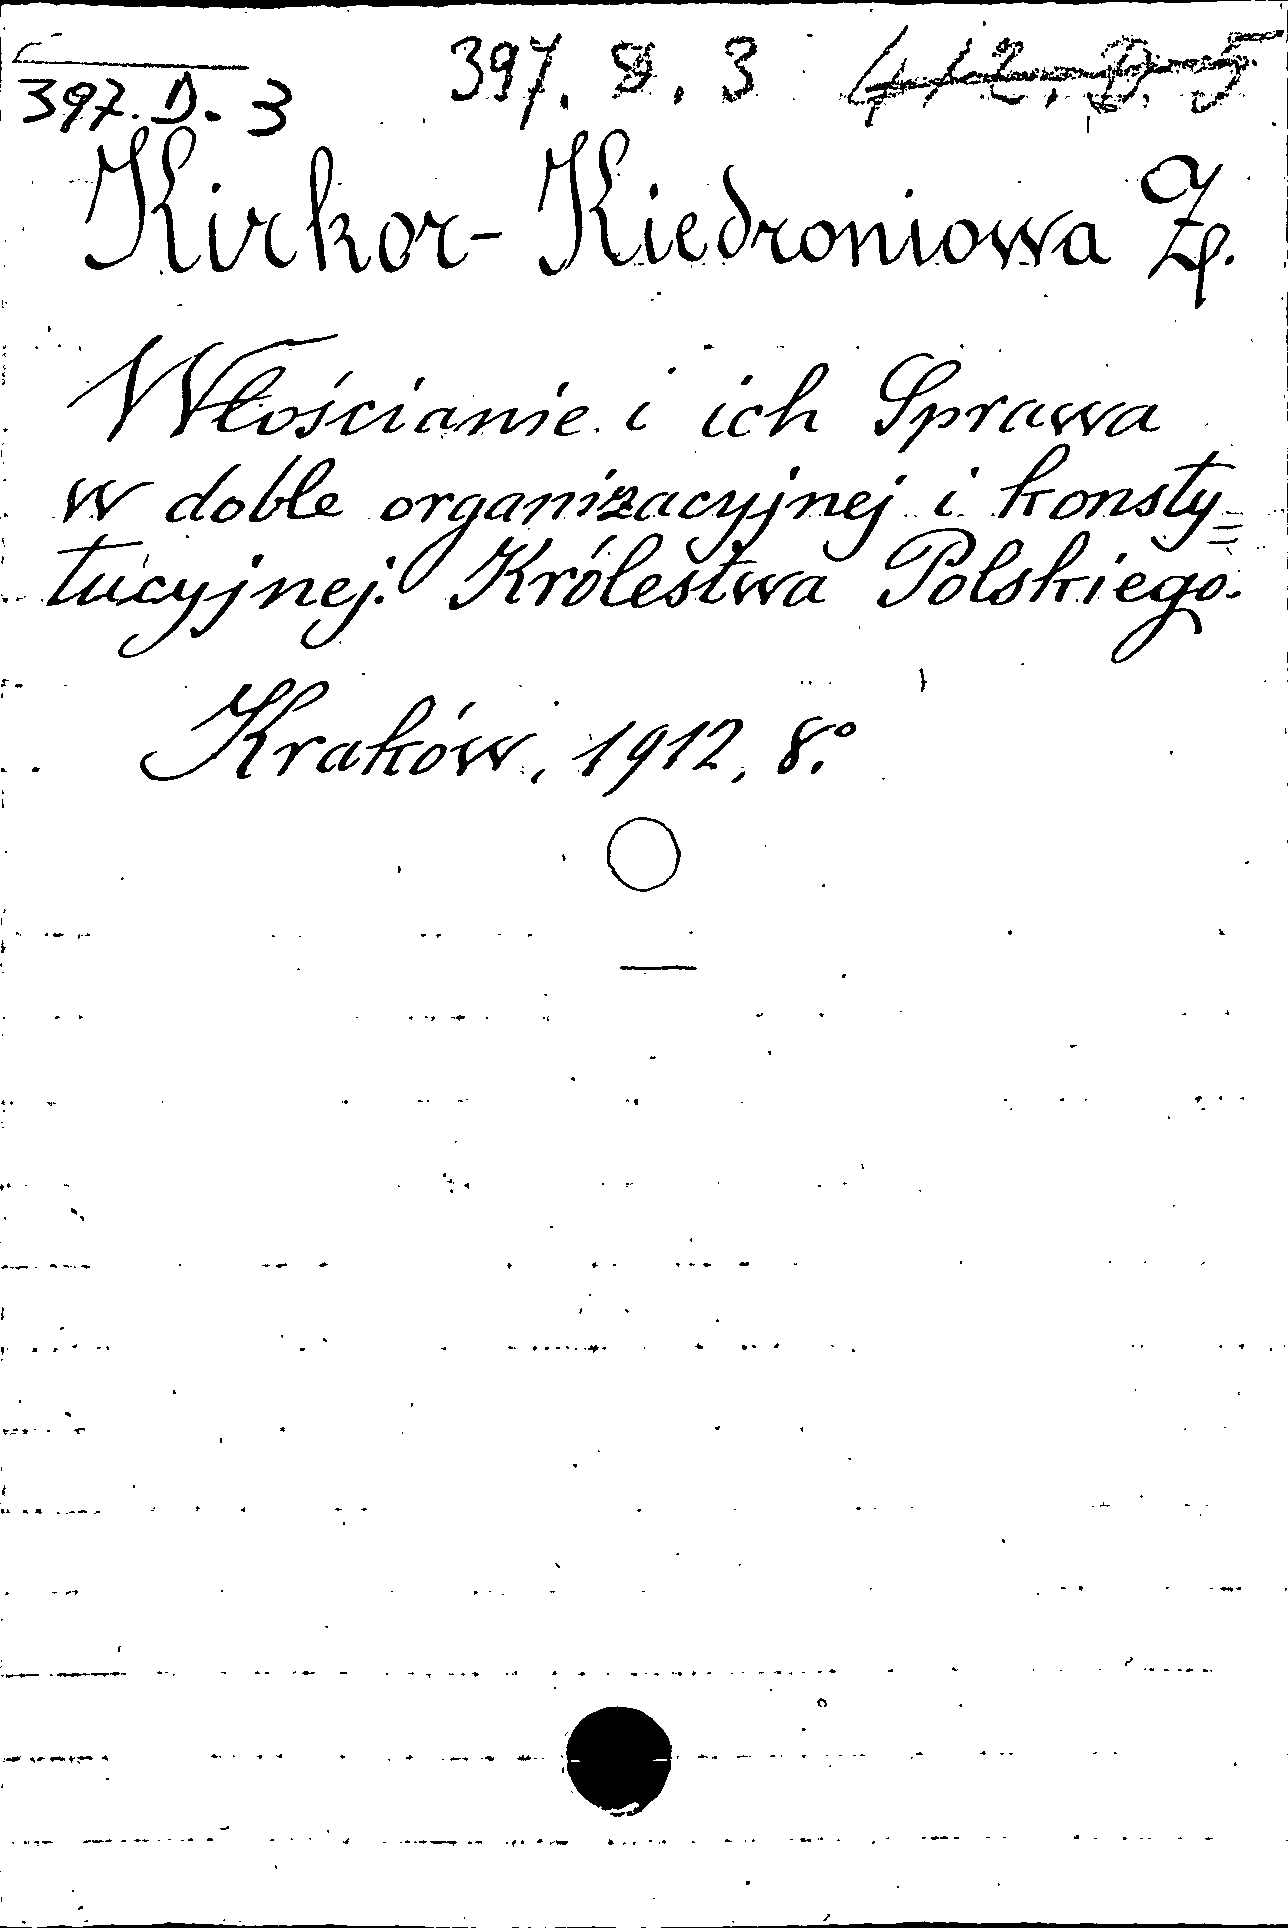 397. D. 3 397. D. 3 412. D. 5
Kirkor-Kiedroniowa Z.
Włościanie i ich Sprawa
w doble organizacyjnej i konsty=
tucyjnej. Królestwa Polskiego.
Kraków, 1912, 8.°